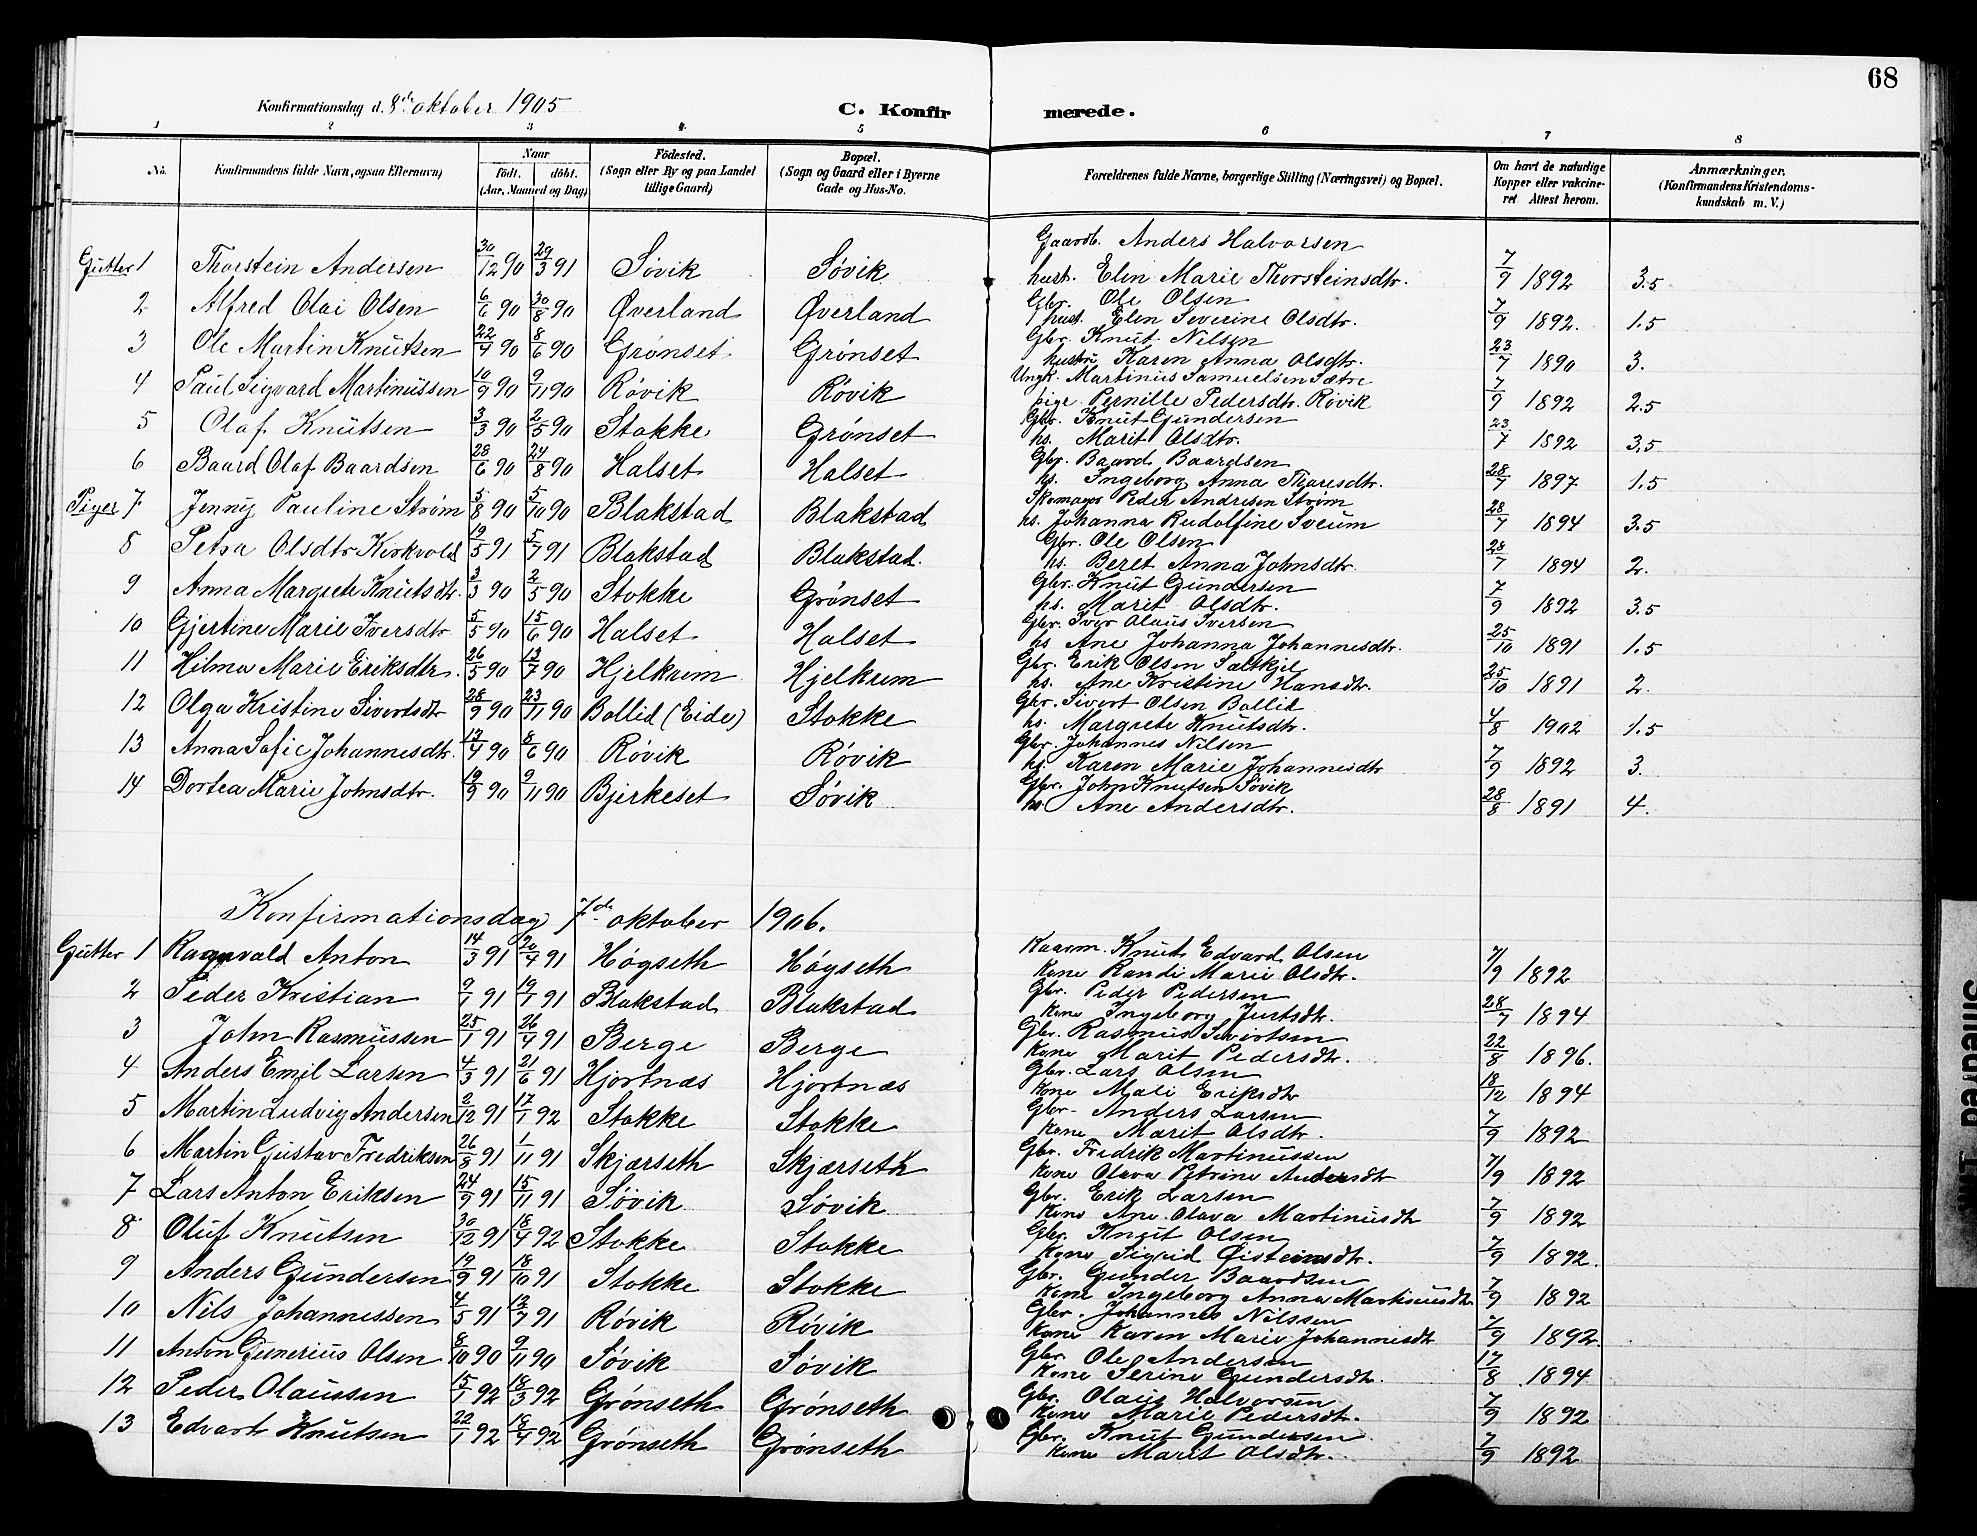 68
Konfirmationsdag d. 8de oktober 1905 C. Konfirmerede.
1 2 3 4. 5 6 7 8
No. Konfirmandens fulde Navn, ogsaa Efternavn) Naar født. døbt. (Aar, Maaned og Dag) Fødested. (Sogn eller By og paa Landet tillige Gaard) Bopæl. (Sogn og Gaard eller i Byerne Gade og Hus-No. Forældrenes fulde Navne, borgerlige Stilling (Næringsvei) og Bopæl. Om havt de naturlige Kopper eller vakcineret Attest herom. Anmærkninger. (Konfirmandens Kristendomskundskab m. V.)
Gaardb. Anders Halvorsen
Gutter 1 Thorstein Andersen 30/12 90 29/3 91 Søvik Søvik hust. Elen Marie Thorsteinsdtr. 7/9 1892 3.5
Gbr. Ole Olsen
2 Alfred Olai Olsen 6/6 90 30/8 90 Øverland Øverland hust. Elen Severine Olsdtr. 7/9 1892. 1.5
Gbr. Knut Nilsen
3 Ole Martin Knutsen 22/4 90 8/6 90 Grønset Grønset hustru Karen Anna Olsdtr. 23/7 1890 3.
Ungk. Martinus Samuelsen Sætre
4 Paul Sigvard Martinussen 10/9 90 9/11 90 Røvik Røvik pige Pernille Pedersdtr. Røvik 7/9 1892 2.5
Gbr. Knut Gundersen
5 Olaf Knutsen 3/3 90 2/5 90 Stokke Grønset hs. Marit Olsdtr. 23/7 1892 3.5
Gbr. Baard Baardsen
6 Baard Olaf Baardsen 28/6 90 24/8 90 Halset Halset hs. Ingeborg Anna Thoresdtr. 28/7 1897 1.5
Skomager Peder Andresen Strøm
Piger 7 Jenny Pauline Strøm 5/8 90 5/10 90 Blakstad Blakstad hs. Johanna Rudolfine Sveum 28/7 1894 3.5
Gbr. Ole Olsen
8 Petra Olsdtr Kirkvold 19/5 91 5/7 91 Blakstad Blakstad. hs. Beret Anna Johnsdtr. 28/7 1894 2.
Gbr. Knut Gundersen
9 Anna Margrete Knutsdtr. 3/3 90 2/5 90 Stokke Grønset hs. Marit Olsdtr. 7/9 1892 3.5
Gbr. Iver Olaus Iversen
10 Gjertine Marie Iversdtr 5/5 90 15/6 90 Halset Halset hs Ane Johanna Johannesdtr. 25/10 1891 1.5
Gbr. Erik Olsen
11 Hilma Marie Eriksdtr. 26/5 90 13/7 90 Hjelkrem Hjelkrem hs. Ane Kristine Hansdtr. 25/10 1891 2.
Gbr. Sivert Olsen Bollid
12 Olga Kristine Sivertsdtr 28/9 90 23/11 90 Bollid (Eide) Stokke hs. Margrete Knutsdtr. 4/8 1902 1.5
Gbr. Johannes Nilsen
13 Anna Sofie Johannesdtr. 13/4 90 8/6 90 Røvik Røvik hs. Karen Marie Johannesdtr 7/9 1892 3.
Gbr. John Knutsen Søvik
14 Dortea Marie Johnsdtr. 19/9 90 9/11 90 Bjerkeset Søvik hs. Ane Andersdtr. 28/8 1891 4.
Konfirmationsdag 7de oktober 1906.
Kaarm. Knut Edvard Olsen
Gutter 1 Ragnvald Anton 14/3 91 20/4 91 Høgseth Høgseth Kone Randi Marie Olsdtr. 7/9 1892
Gbr. Peder Pedersen
2 Peder Kristian 9/1 91 19/1 91 Blakstad Blakstad Kone Ingeborg Jertsdtr. 28/7 1894
Gbr. Rasmus Sivertsen
3 John Rasmussen 25/1 91 26/4 91 Berge Berge Kone Marit Pedersdtr. 22/8 1896.
Gbr. Lars Olsen
4 Anders Emil Larsen 4/3 91 21/6 91 Hjortnæs Hjortnæs Kone Mali Eriksdtr 18/12 1894
Gbr. Anders Larsen
5 Martin Ludvig Andersen 2/12 91 17/1 92 Stokke Stokke Kone Marit Olsdtr. 7/9 1892
Gbr. Fredrik Martinussen
6 Martin Gustav Fredriksen 26/8 91 1/11 91 Skjærseth Skjærseth Kone Olava Petrine Andersdtr 7/9 1892
Gbr. Erik Larsen
7 Lars Anton Eriksen 24/9 91 15/11 91 Søvik Søvik Kone Ane Olava Martinusdtr 7/9 1892
Gbr. Knut Olsen
8 Oluf Knutsen 30/12 91 18/4 92 Stokke Stokke Kone Sigrid Øisteinsdtr. 7/9 1892.
Gbr. Gunder Baardsen
9 Anders Gundersen 19/9 91 18/10 91 Stokke Stokke Kone Ingeborg Anna Martinusdtr 7/9 1892
Gbr. Johannes Nilssen
10 Nils Johannessen 4/5 91 12/7 91 Røvik Røvik Kone Karen Marie Johannesdtr 7/9 1892.
Gbr. Ole Andersen
11 Anton Gunerius Olsen 8/10 90 9/11 90 Søvik Søvik Kone Serine Gundersdtr. 17/8 1894
Gbr. Olaus Halvorsen
12 Peder Olaussen 15/1 92 18/3 92 Grønseth Grønseth Kone Marie Pedersdtr. 7/9 1892
Gbr. Knut Gundersen
13 Edvart Knutsen 22/1 92 18/4 92 Grønseth Grønseth Kone Marit Olsdtr. 7/9 1892